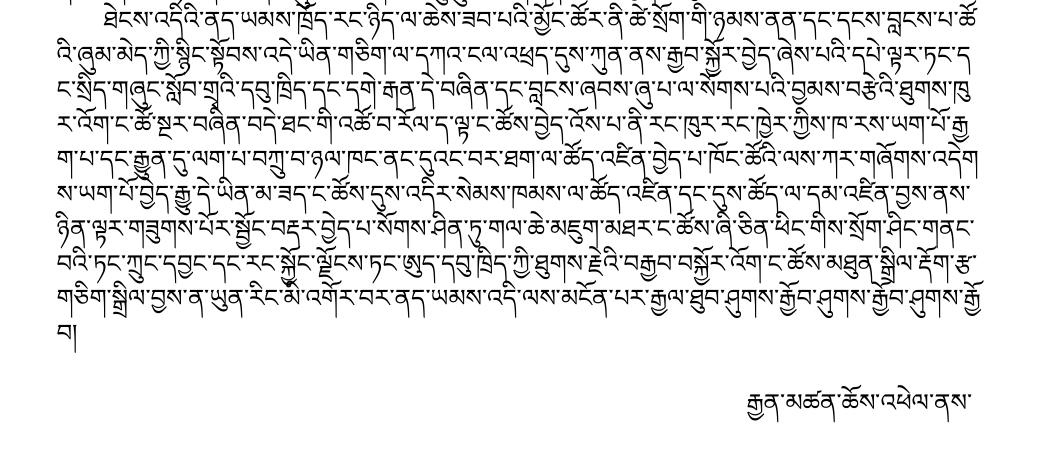 ཐེངས་འདིའི་ནད་ཡམས་ཁྲོད་རང་ཉིད་ལ་ཆེས་ཟབ་པའི་མྱོང་ཚོར་ནི་ཚེ་སྲོག་གི་ཉམས་ནན་དང་དངས་བླངས་པ་ཚོ
འི་ཞུམ་མེད་ཀྱི་སྙིང་སྟོབས་འདི་ཡིན་གཅིག་ལ་དཀའ་ངལ་འཕྲད་དུས་ཀུན་ནས་རྒྱབ་སྐྱོར་བྱེད་ཞེས་པའི་དཔེ་ལྟར་ཏང་ད
ང་སྲིད་གཞུང་སློབ་གྲྭའི་དབུ་ཁྲིད་དང་དགེ་རྒན་དེ་བཞིན་དང་བླངས་ཞབས་ཞུ་པ་ལ་སོགས་པའི་བྱམས་བརྩེའི་ཐུགས་ཁུ
ར་འོག་ང་ཚོ་སྔར་བཞིན་བདེ་ཐང་གི་འཚོ་བ་རོལ་ད་ལྟ་ང་ཚོས་བྱེད་འོས་པ་ནི་རང་ཁུར་རང་ཁྱེར་ཀྱིས་ཁ་རས་ཡག་པོ་རྒྱ
ག་པ་དང་རྒྱུན་དུ་ལག་པ་བཀྲུ་བ་ཉལ་ཁང་ནང་དུའང་བར་ཐག་ལ་ཚོད་འཛིན་བྱེད་པ་ཁོང་ཚོའི་ལས་ཀར་གཞོགས་འདེག
ས་ཡག་པོ་བྱེད་རྒྱུ་དེ་ཡིན་མ་ཟད་ང་ཚོས་དུས་འདིར་སེམས་ཁམས་ལ་ཚོད་འཛིན་དང་དུས་ཚོད་ལ་དམ་འཛིན་བྱས་ནས་
ཉིན་ལྟར་གཟུགས་པོར་སྦྱོང་བརྡར་བྱེད་པ་སོགས་ཤིན་ཏུ་གལ་ཆེ་མཇུག་མཐར་ང་ཚོས་ཞི་ཅིན་ཕིང་གིས་སྲོག་ཤིང་གནང་
བའི་ཏང་ཀྲུང་དབྱང་དང་རང་སྐྱོང་ལྗོངས་ཏང་ཨུད་དབུ་ཁྲིད་ཀྱི་ཐུགས་རྗེའི་བརྒྱབ་བསྐྱོར་འོག་ང་ཚོས་མཐུན་སྒྲིལ་རྡོག་རྩ་
གཅིག་སྒྲིལ་བྱས་ན་ཡུན་རིང་མི་འགོར་བར་ནད་ཡམས་འདི་ལས་མངོན་པར་རྒྱལ་ཐུབ་ཤུགས་རྒྱོབ་ཤུགས་རྒྱོབ་ཤུགས་རྒྱོ
བ།
རྒྱན་མཚན་ཆོས་འཕེལ་ནས་